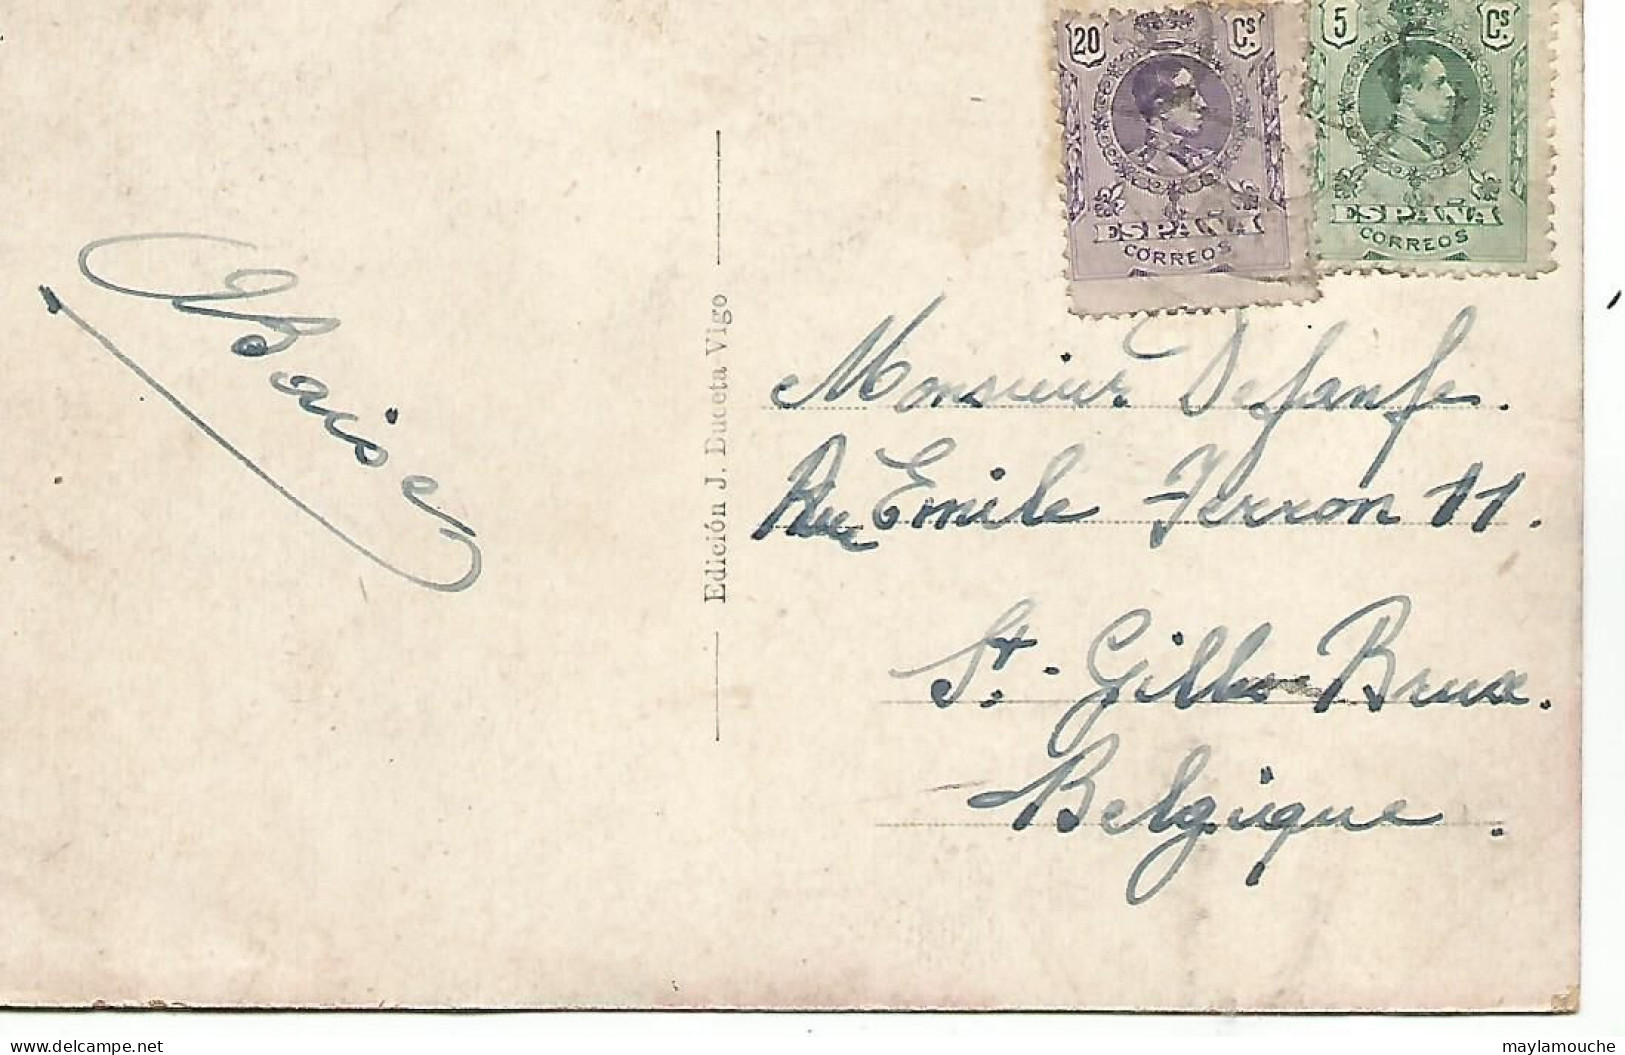 20 Cs.
ESPAÑA
CORREOS
5 Cs.
ESPAÑA
CORREOS
Baiser
Edición J. Buceta Vigo
Monsieur
Rue Emile Ferron 11.
St. Gilles Brux.
Belgique.
delcampe.net
maylamouche